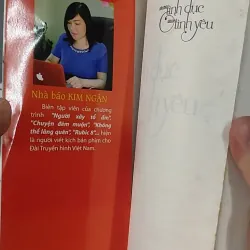 Nhà báo KIM NGÂN
Biên tập viên của chương
trình "Người xây tổ ấm",
"Chuyện đêm muộn", "Không
thể lãng quên", "Rubic 8",... hiện
là người viết kịch bản phim cho
Đài Truyền hình Việt Nam.
Tình dục
Tình yêu